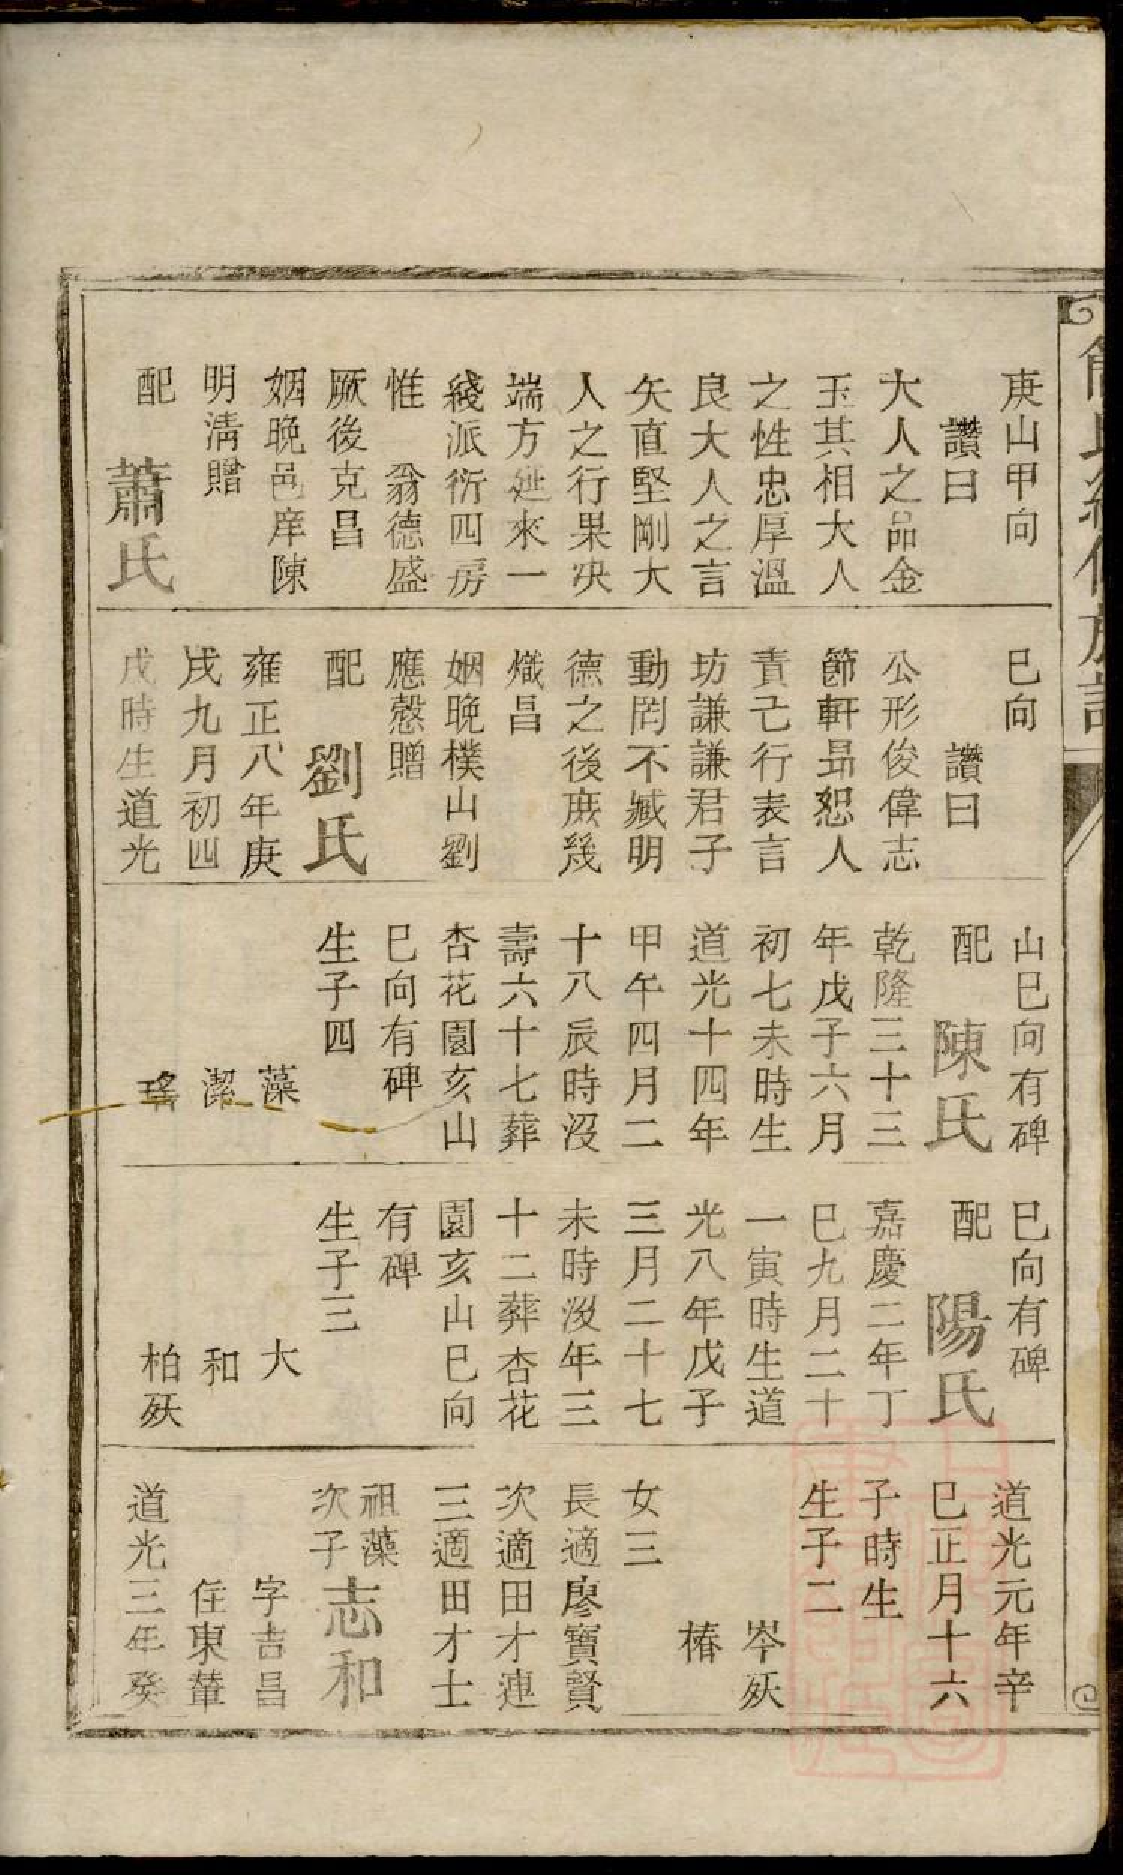 庚山甲向
讚曰
大人之品金
玉其相大人
之性忠厚溫
良大人之言
矢直堅剛大
人之行果決
端方延來一
綫派衍四房
惟　翁德盛
厥後克昌
姻晚邑庠陳
明清贈
配
蕭氏
巳向
讚曰
公形俊偉志
節軒昂恕人
責己行表言
坊謙謙君子
動罔不臧明
德之後庶幾
熾昌
姻晚樸山劉
應慤贈
配
劉氏
雍正八年庚
戌九月初四
戌時生道光
山巳向有碑
配
陳氏
乾隆三十三
年戊子六月
初七未時生
道光十四年
甲午四月二
十八辰時沒
壽六十七葬
杏花園亥山
巳向有碑
生子四
藻
潔
瑤
巳向有碑
配
陽氏
嘉慶二年丁
巳九月二十
一寅時生道
光八年戊子
三月二十七
未時沒年三
十二葬杏花
園亥山巳向
有碑
生子三
大
和
柏殀
道光元年辛
巳正月十六
子時生
生子二
岑殀
椿
女三
長適廖寶賢
次適田才連
三適田才士
祖藻
次子
志和
字吉昌
住東輋
道光三年癸